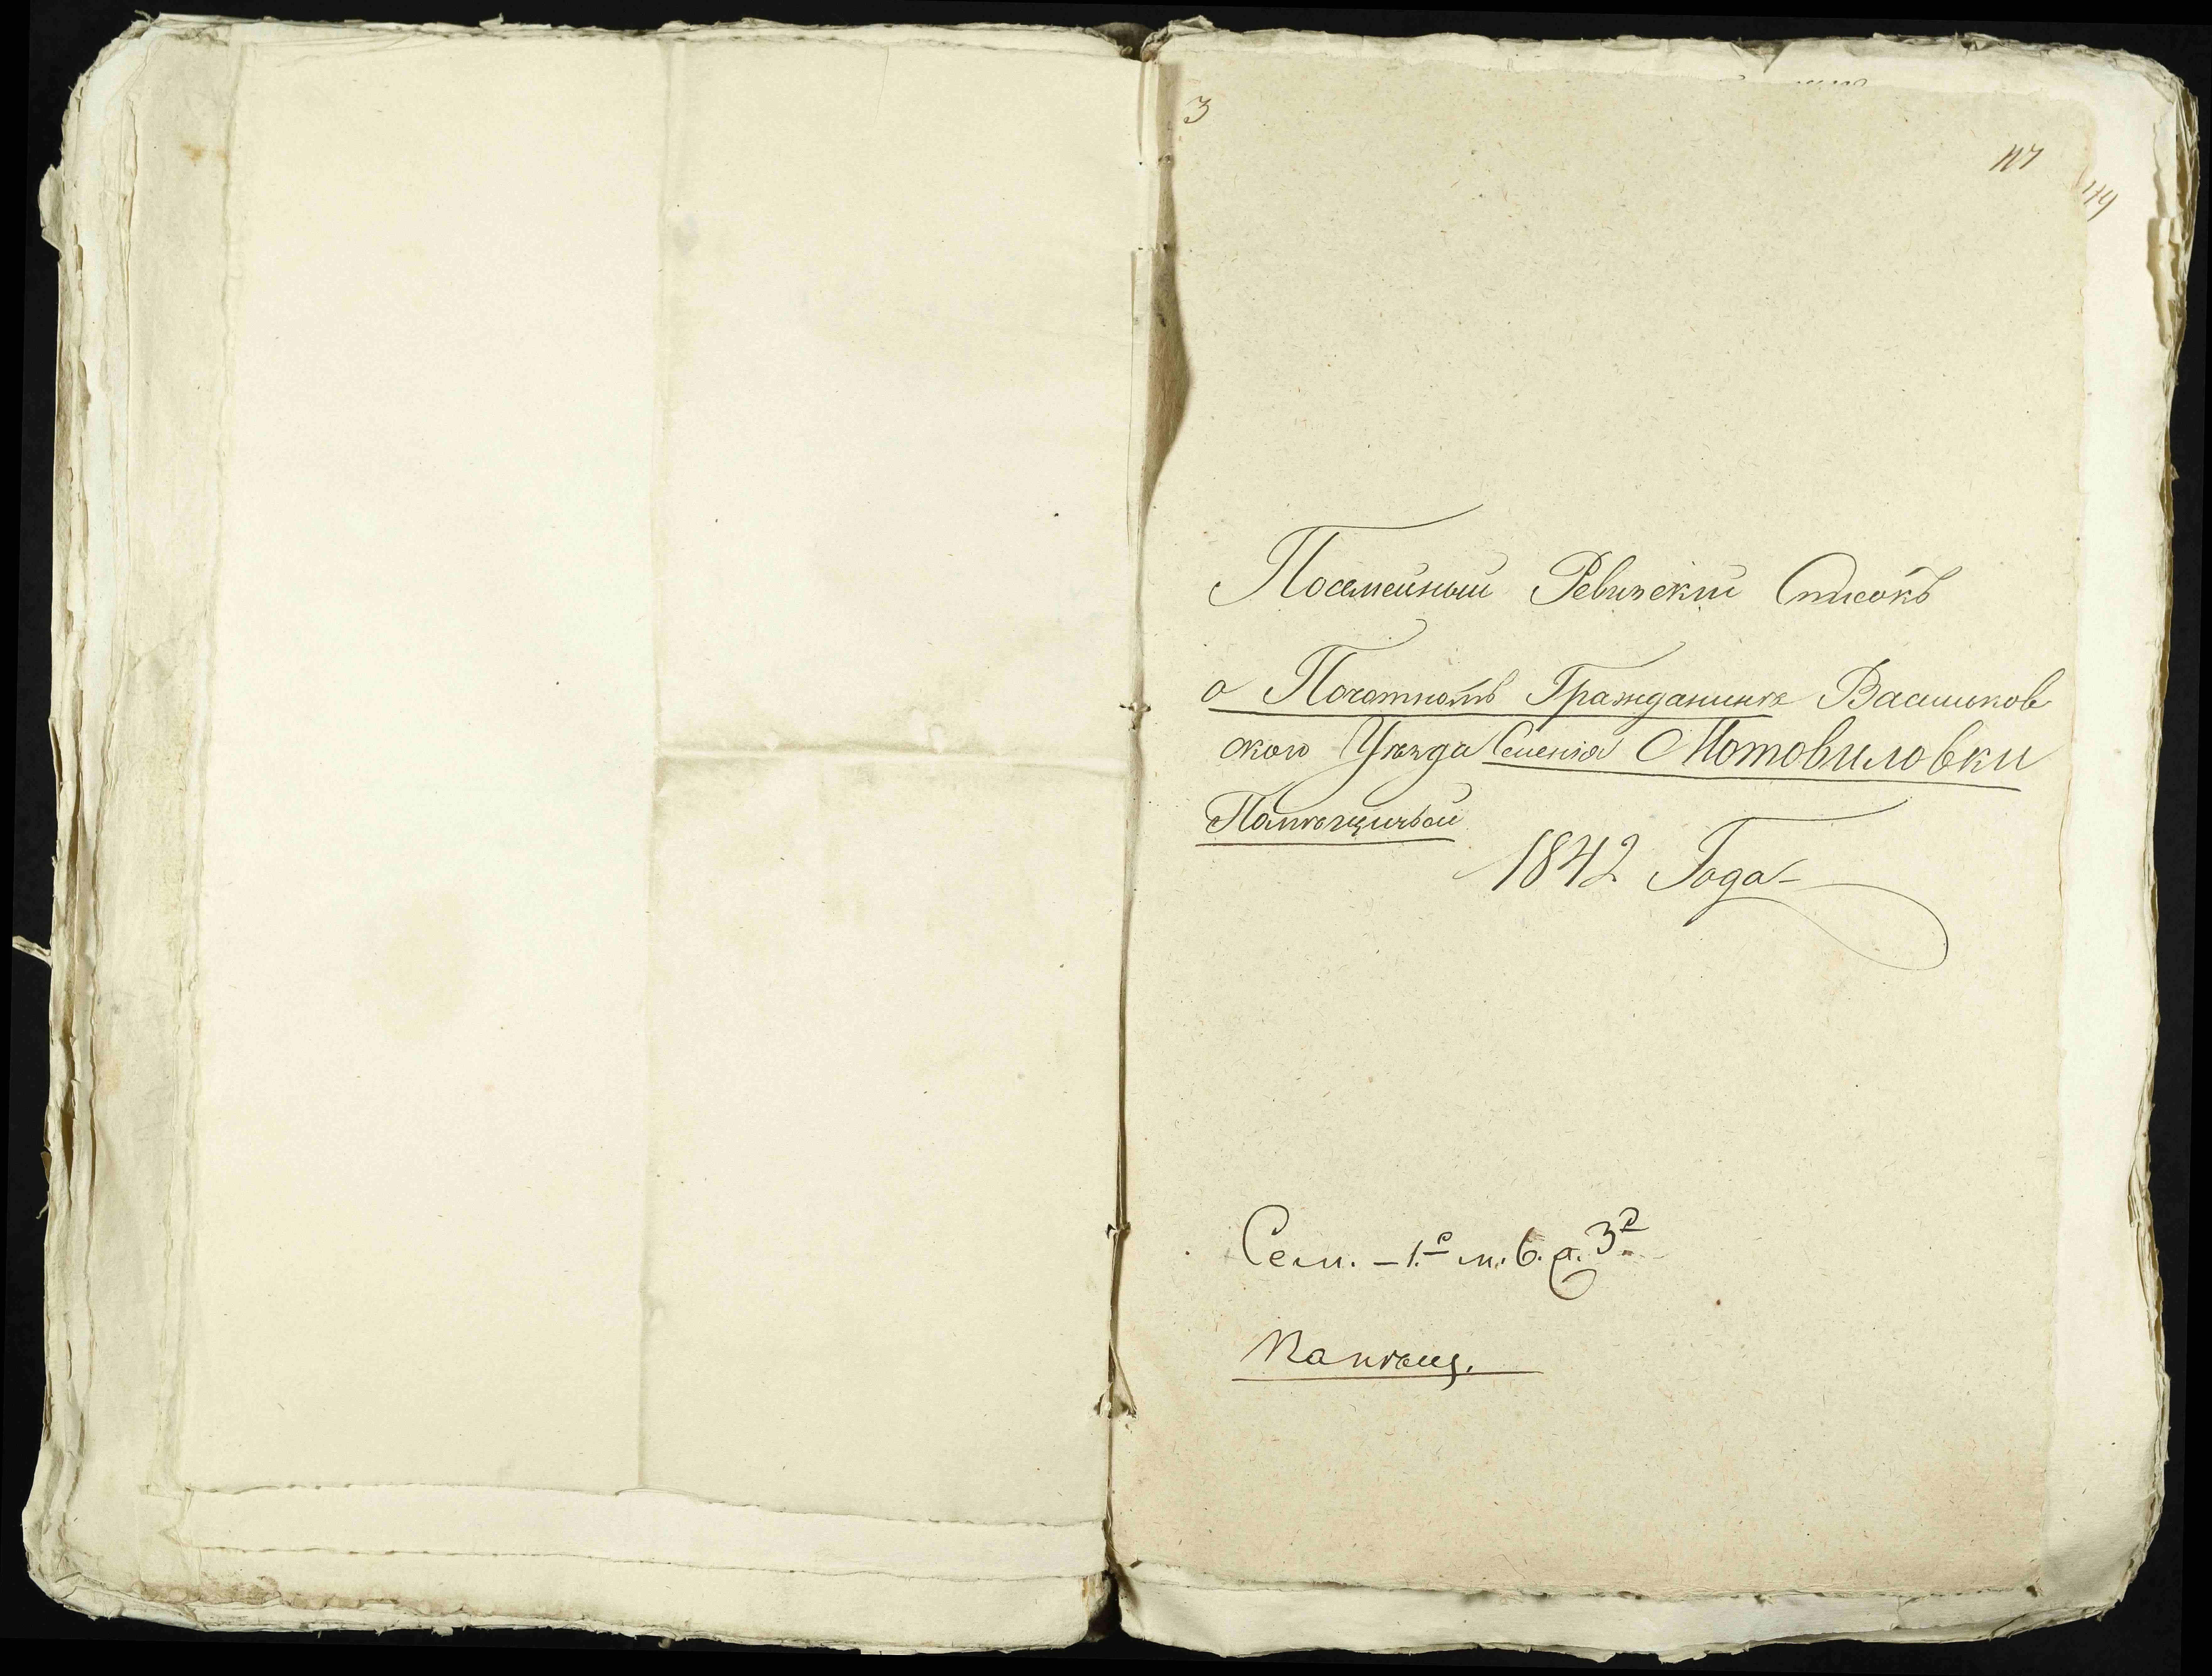 3
117
179
Посемейный Ревизскій Списокъ
о Почотномъ Гражданинѣ Васильков
ского Уѣзда Селенія Мотовиловки
1842 Года
Сем. – 1. м. 6. д. 3